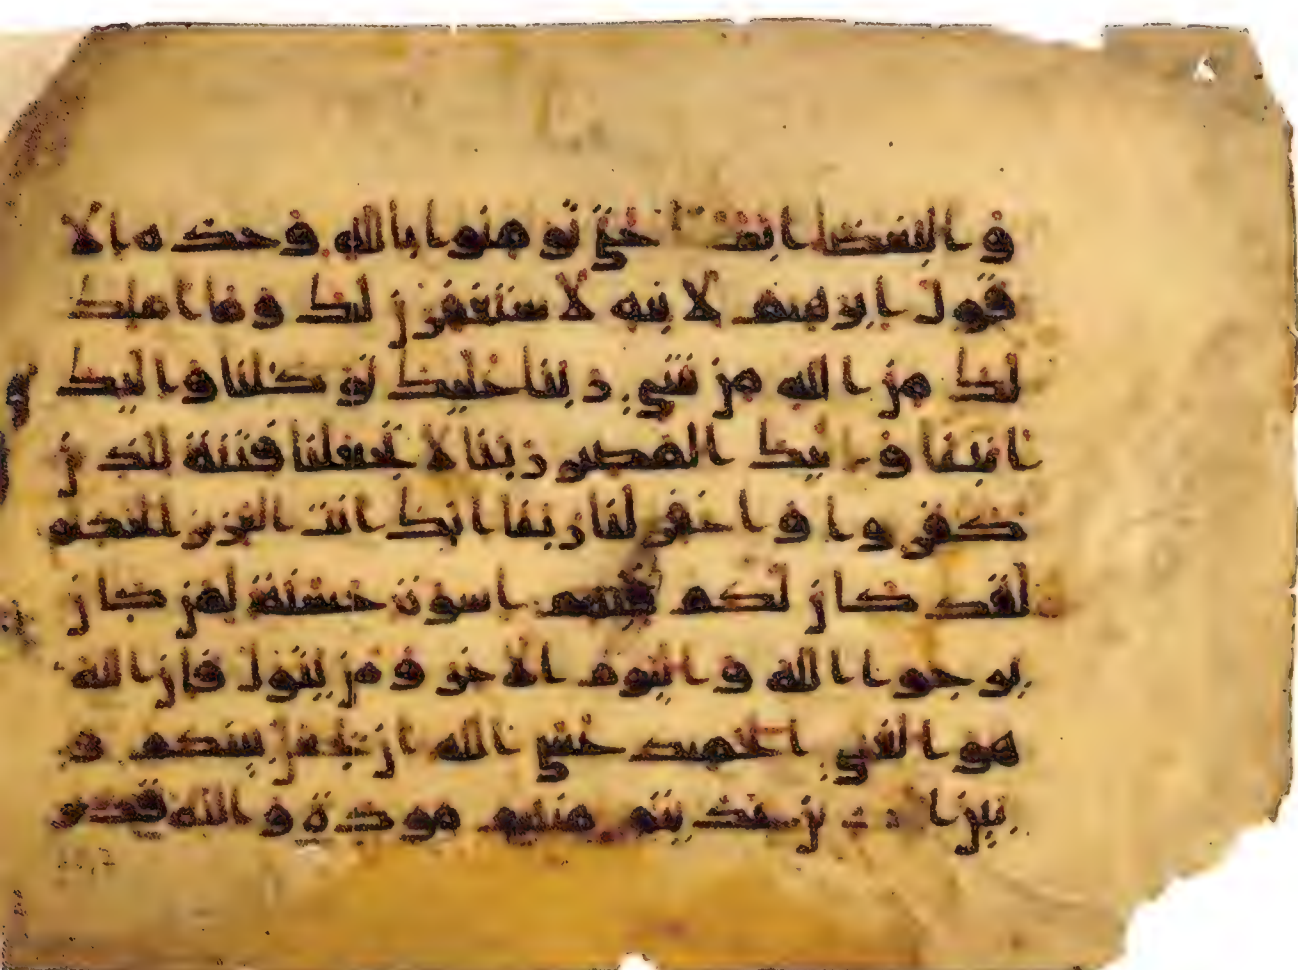 و البغضا ابدا حتى تو منوا بالله وحده الا
قول ابرهيم لابيه لاستغفرن لك وما املك
لك من الله من شي ربنا عليك توكلنا واليك
انبنا واليك المصير ربنا لا تجعلنا فتنة للذ ين
كفروا واغفر لنا ربنا انك انت العزيز الحكيم
لقد كان لكم فيهم اسوة حسنة لمن كان
يرجوا الله واليوم الاخر ومن يتول فان الله
هو الغني الحميد عسى الله ان يجعل بينكم و
بين الذ ين عاديتم منهم مودة والله قدير